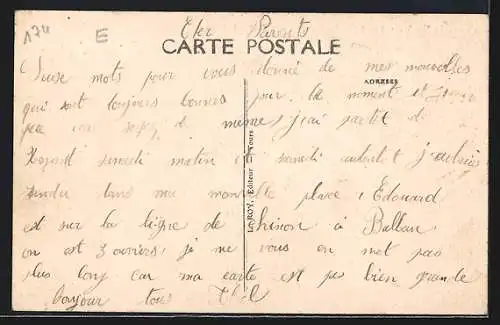 174
E
Cher Parents
CARTE POSTALE
Deux mots pour vous donné de mes nouvelles
ADRESSE
qui sont toujours bonnes pour le moment et j'espère
que vous soyez de memes j'ai partit de
samedi matin et samedi j'
dans ma nouvelle place, Édouard
LE ROY, Editeur Tours
est sur la ligne de Chinon à Ballan
on est 3 ouvriers je ne vous en met pas
plus long car ma carte est pas bien grande
bonjour tous